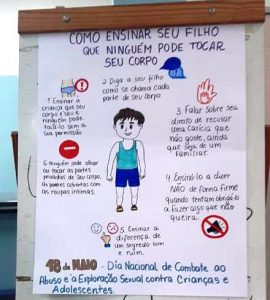 COMO ENSINAR SEU FILHO
QUE NINGUÉM PODE TOCAR
SEU CORPO
1 Ensinar a
criança que seu
corpo é seu e
ninguém pode
tocá-lo sem a
sua permissão
2 Diga a seu filho
como se chama cada
parte de seu corpo
3 Falar sobre seu
direito de recusar
uma carícia que
não goste, ainda
que seja de um
familiar.
6 Ninguém pode olhar
ou tocar as partes
privadas de seu corpo.
As partes cobertas com
as roupas íntimas.
4 Ensiná-lo a dizer
NÃO de forma firme
quando tentam obrigá-lo
a fazer algo que não
queira.
5 Ensinar a
diferença de
um segredo bom
e ruim.
18 de MAIO - Dia Nacional de Combate ao
Abuso e à Exploração Sexual contra Crianças e
Adolescentes.